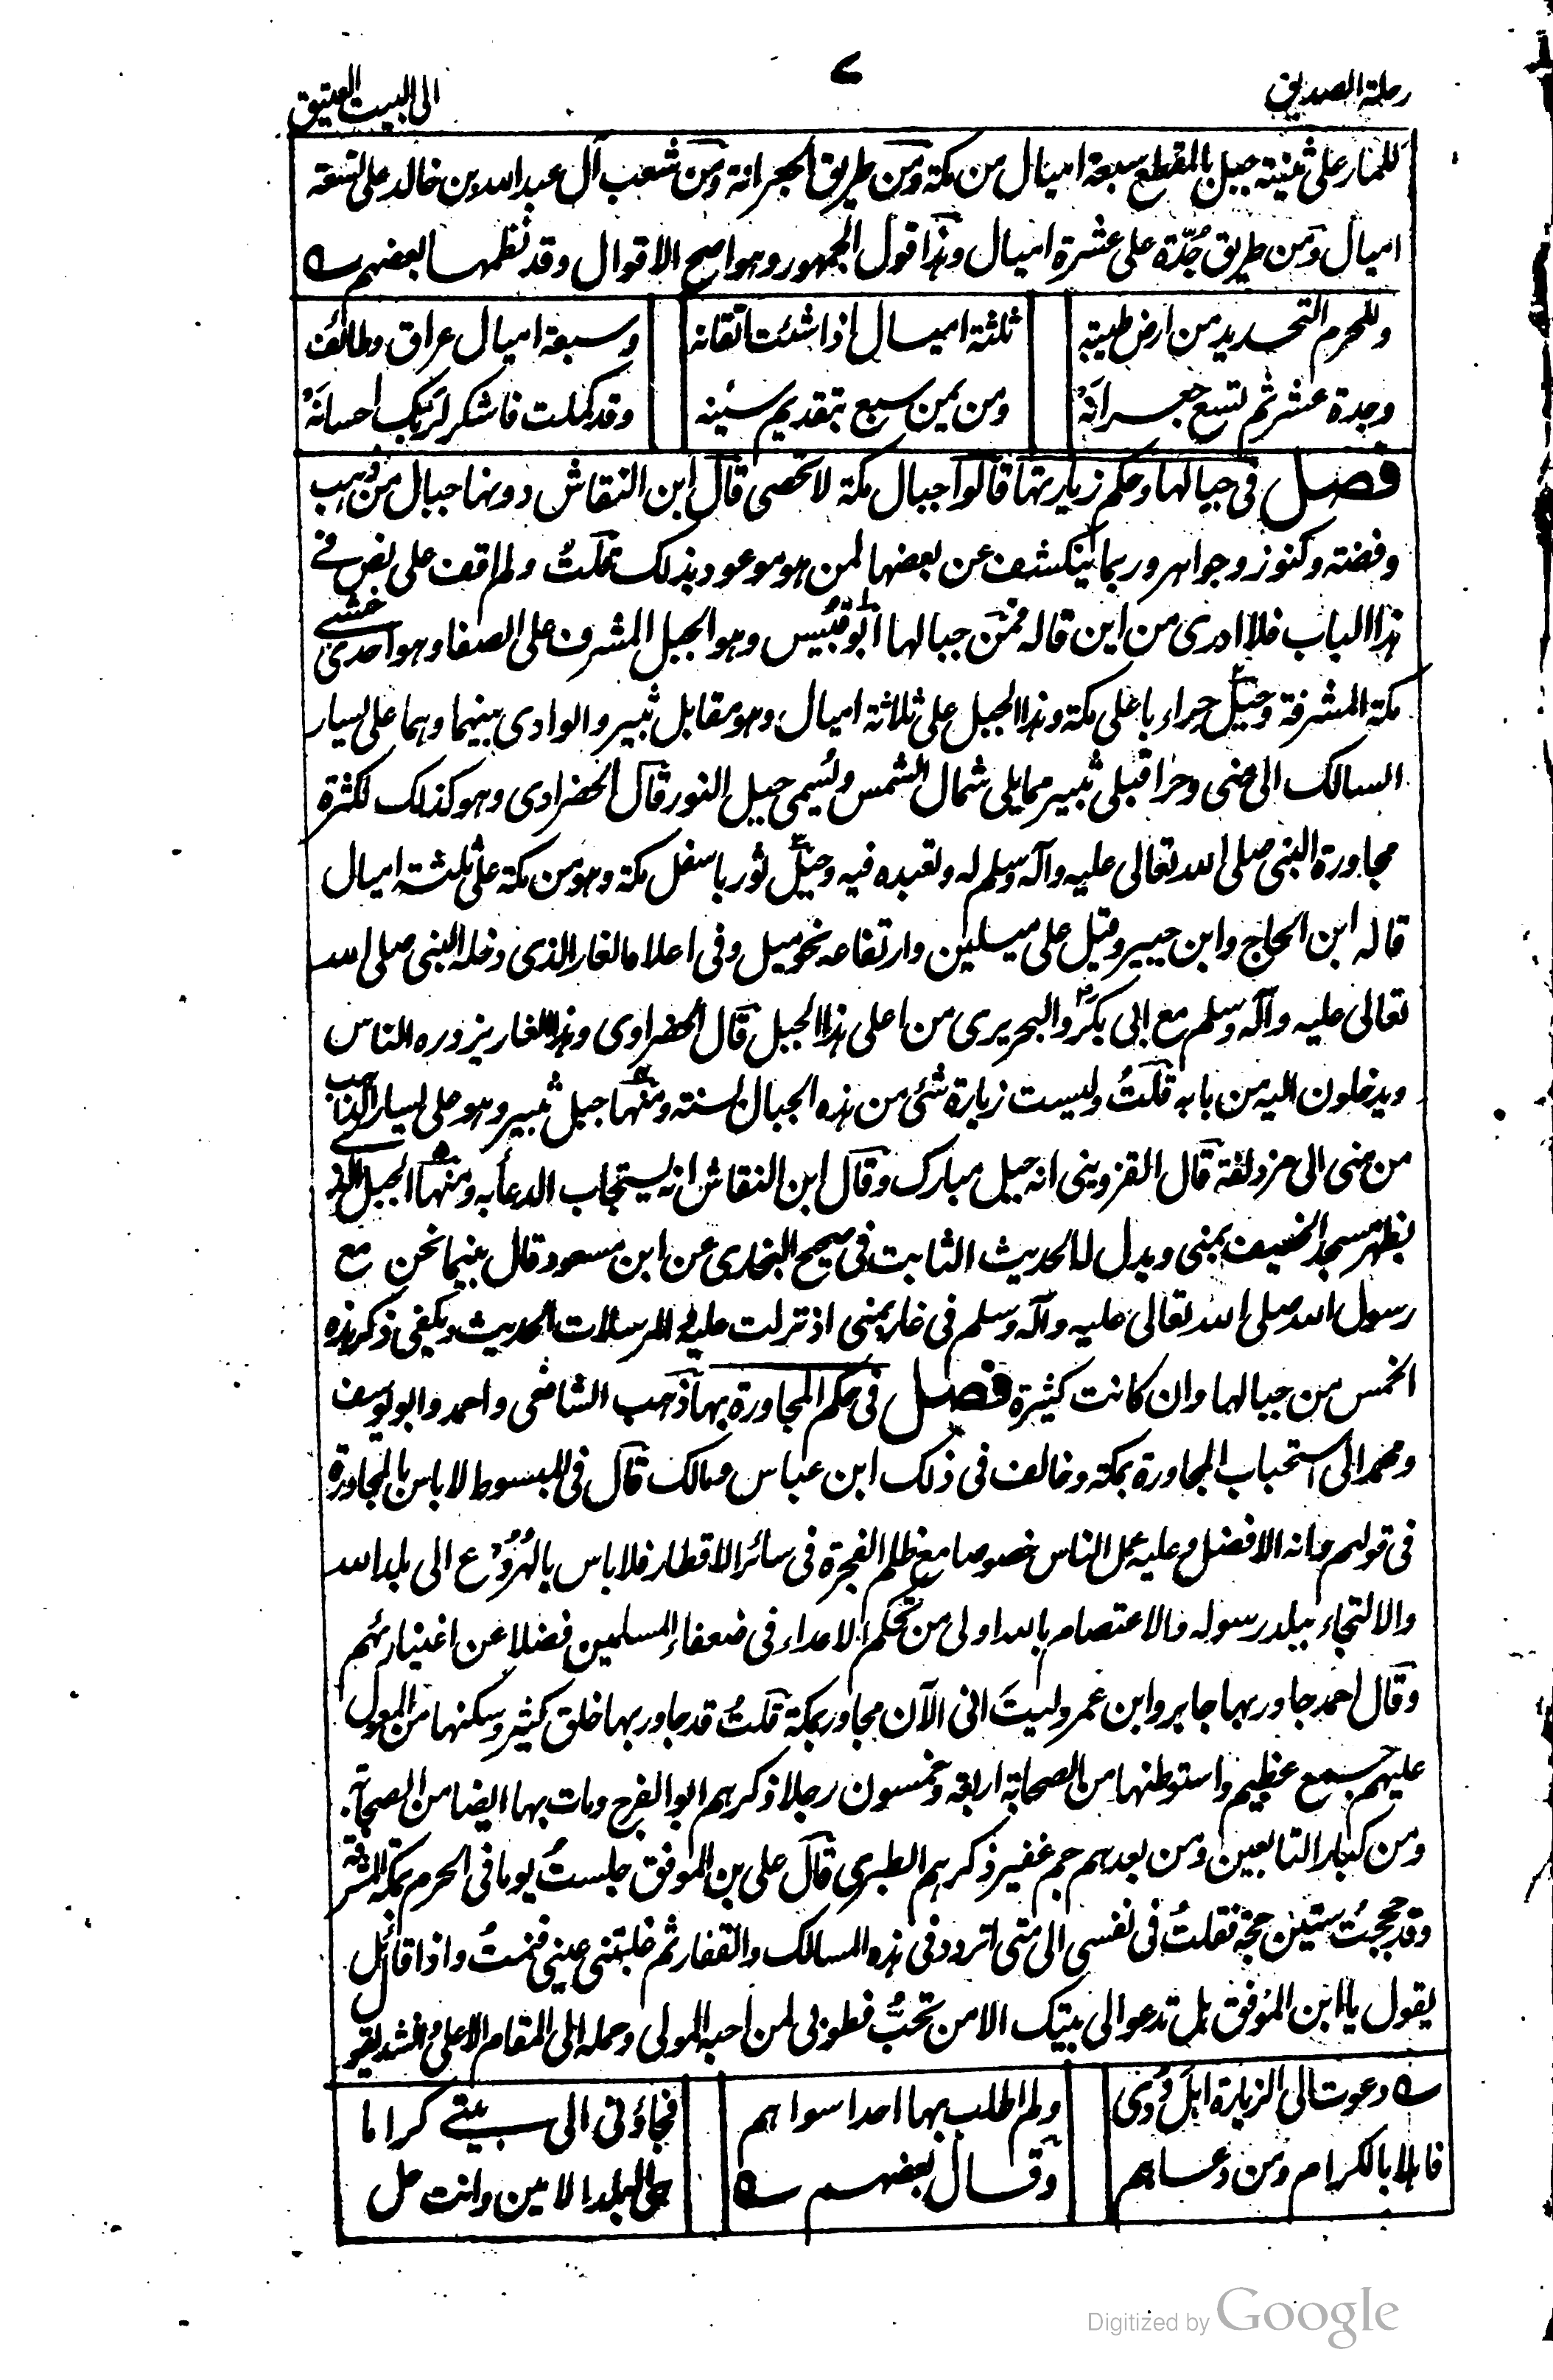 رحلة الصديق
٧
الى البيت العتيق
للمار على ثنية جبل بالمقطع سبعة اميال من مكة ومن طريق الجعرانة ومن شعب آل عبد الله بن خالد على تسعة
اميال ومن طريق جُدّة على عشرة اميال وهذا قول الجمهور وهو اصح الاقوال وقد نظمها بعضهم
وللحرم التحديد من ارض طيبة ثلثة اميال اذا شئت اتقانه وسبعة اميال عراق وطائف
وجدة عشر ثم تسع جعرانه ومن يمن سبع بتقديم سينه وقد كملت فاشكر لربك احسانه
فصل فى جبالها وحكم زيارتها قالوا جبال مكة لا تحصى قال ابن النقاش دونها جبال من ذهب
وفضة وكنوز وجواهر وربما ينكشف عن بعضها لمن هو موعود بذلك قلتُ ولم اقف على نص فے
هذا الباب فلا ادرى من اين قاله فمن جبالها ابو قُبَيس وهو الجبل المشرف على الصفا وهو احد خشبے
مكة المشرفة وجبل حراء باعلى مكة وهذا الجبل على ثلاثة اميال وهو مقابل ثبير والوادى بينهما وهما على يسار
السالك الى منى وحرا قبلى ثبير مما يلى شمال الشمس ويُسمى جبل النور قال الحضراوى وهو كذلك لكثرة
مجاورة النبى صلى الله تعالى عليه وآله وسلم له وتعبده فيه وجبل ثور باسفل مكة وهو من مكة على ثلثة اميال
قاله ابن الحاج وابن جبير وقيل على ميلين وارتفاعه نحو ميل وفى اعلاه الغار الذى دخله النبى صلى الله
تعالى عليه وآله وسلم مع ابى بكر والبحر يرى من اعلى هذا الجبل قال الحضراوى وهذا الغار يزوره الناس
ويدخلون اليه من بابه قلتُ وليست زيارة شئ من هذه الجبال بسنة ومنها جبل ثبير وهو على يسار الذاهب
من منى الى مزدلفة قال القزوينى انه جبل مبارك وقال ابن النقاش انه يستجاب الدعاء به ومنها الجبل الذے
بظهر مسجد الخيف بمنى ويدل له الحديث الثابت فى صحيح البخارى عن ابن مسعود قال بينما نحن مع
رسول الله صلى الله تعالى عليه وآله وسلم فى غار بمنى اذ نزلت عليه المرسلات الحديث ويكفى ذكر هذه
الخمس من جبالها وان كانت كثيرة فصل فى حكم المجاورة بها ذهب الشافعى واحمد وابو يوسف
ومحمد الى استحباب المجاورة بمكة وخالف فى ذلك ابن عباس ومالك قال فى المبسوط لا باس بالمجاورة
فى قولهم وانه الافضل وعليه عمل الناس خصوصا مع ظلم الفجرة فى سائر الاقطار فلا باس بالهُرُوْع الى بلد الله
والالتجاء ببلد رسوله والاعتصام بالله اولى من تحكم الاعداء فى ضعفاء المسلمين فضلا عن اغنيائهم
وقال احمد جاور بها جابر وابن عمر وليت انى الآن مجاور بمكة قلتُ قد جاور بها خلق كثير وسكنها من المعول
عليهم جمع عظيم واستوطنها من الصحابة اربعة وخمسون رجلا ذكرهم ابو الفرج ومات بها ايضا من الصحابة
ومن كبار التابعين ومن بعدهم جم غفير ذكرهم الطبرى قال على بن الموفق جلستُ يوما فى الحرم بمكة المشرفة
وقد حججتُ ستين حجة فقلتُ فى نفسى الى متى اتردد فى هذه المسالك والقفار ثم غلبتنى عينى فنمتُ واذا قائل
يقول يا ابن الموفق هل تدعو الى بيتك الا من تحبُّ فطوبى لمن احبه المولى وحمله الى المقام الاعلى
دعوت الى الزيارة اهل وُدّى ولم اطلب بها احدا سواهم فجاؤنى الى بيتے كراما
فاهلا بالكرام ومن دعاهم وقال بعضهم على البلد الامين وانت حل
Digitized by Google